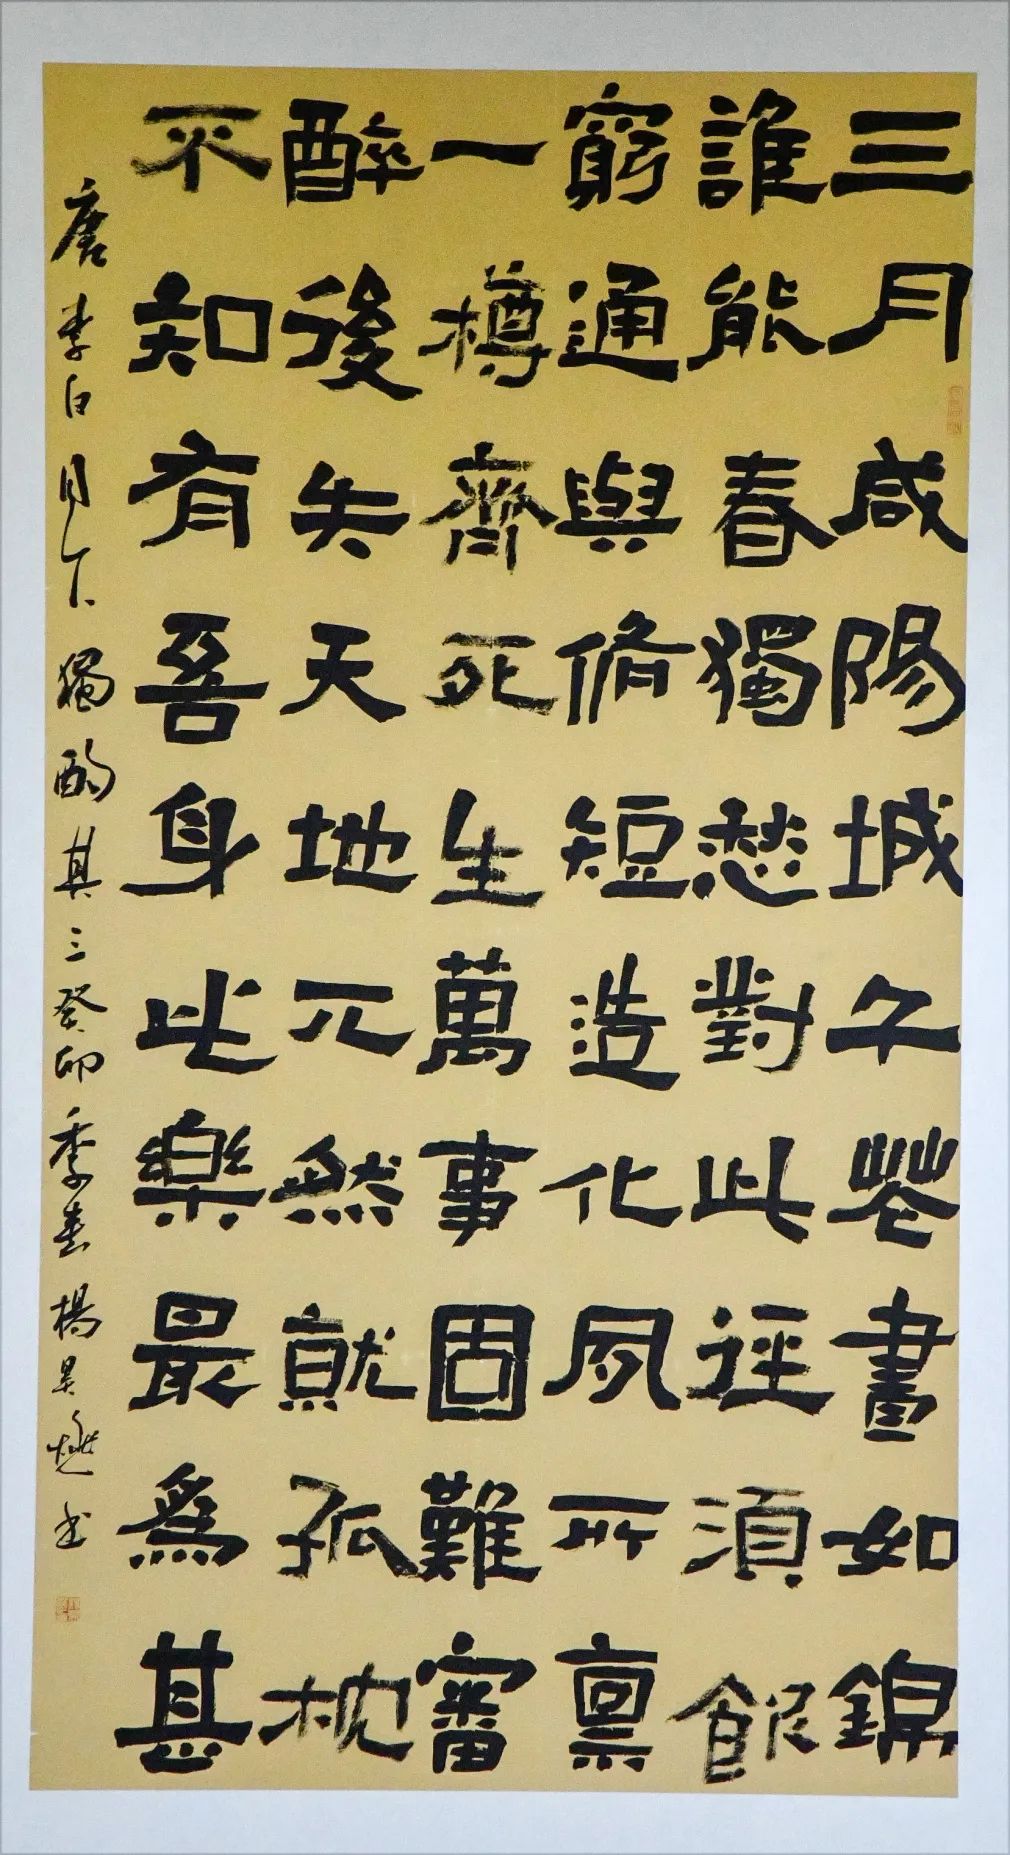 三月咸陽城千花晝如錦
誰能春獨愁對此徑須飲
窮通與脩短造化夙所禀
一樽齊死生萬事固難審
醉後失天地兀然就孤枕
不知有吾身此樂最為甚
唐李白月下獨酌其三癸卯季春楊昊書